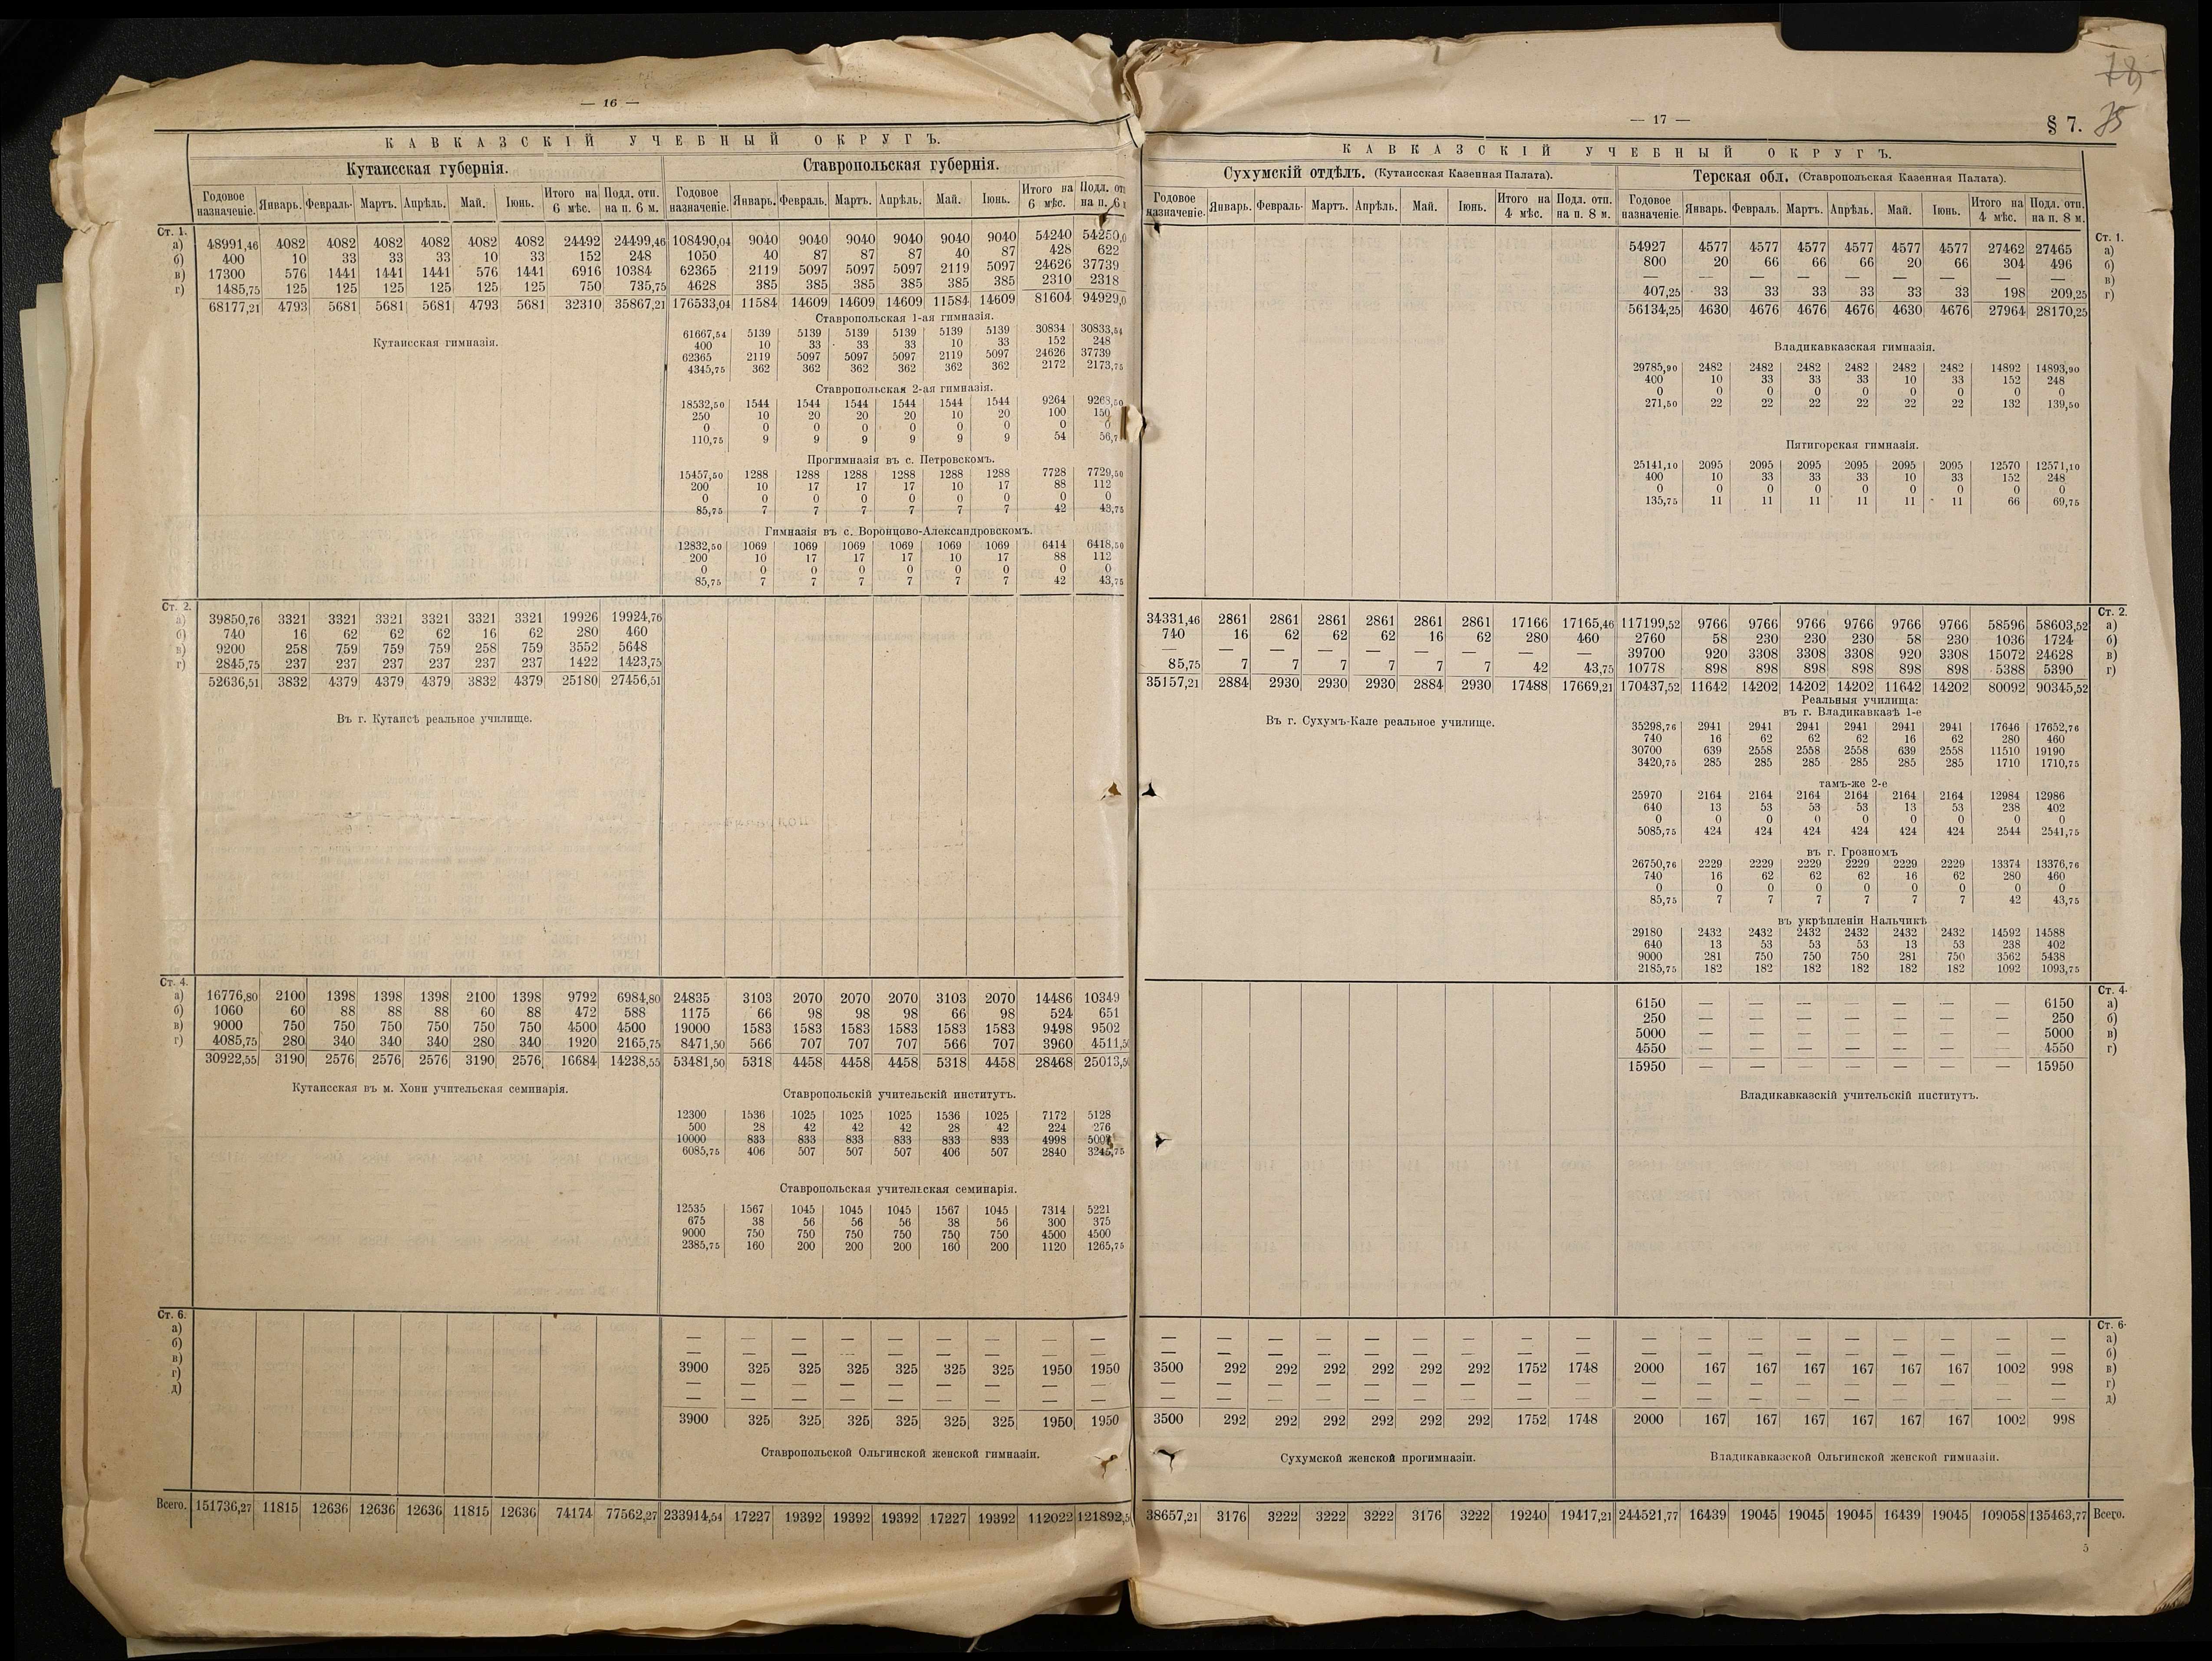 — 16 —
КАВКАЗСКІЙ УЧЕБНЫЙ ОКРУГЪ.
Кутаисская губернія. Ставропольская губернія.
Годовое назначеніе. Январь. Февраль. Мартъ. Апрѣль. Май. Іюнь. Итого на 6 мѣс. Подл. отп. на п. 6 м. Годовое назначеніе. Январь. Февраль. Мартъ. Апрѣль. Май. Іюнь. Итого на 6 мѣс. Подл. отп на п. 6
Ст. 1.
а) 48991,46 4082 4082 4082 4082 4082 4082 24492 24499,46 108490,04 9040 9040 9040 9040 9040 9040 54240 54250,0
б) 400 10 33 33 33 10 33 152 248 1050 40 87 87 87 40 87 428 622
в) 17300 576 1441 1441 1441 576 1441 6916 10384 62365 2119 5097 5097 5097 2119 5097 24626 37739
г) 1485,75 125 125 125 125 125 125 750 735,75 4628 385 385 385 385 385 385 2310 2318
68177,21 4793 5681 5681 5681 4793 5681 32310 35867,21 176533,04 11584 14609 14609 14609 11584 14609 81604 94929,0
Кутаисская гимназія.
Ставропольская 1-ая гимназія.
61667,54 5139 5139 5139 5139 5139 5139 30834 30833,54
400 10 33 33 33 10 33 152 248
62365 2119 5097 5097 5097 2119 5097 24626 37739
4345,75 362 362 362 362 362 362 2172 2173,75
Ставропольская 2-ая гимназія.
18532,50 1544 1544 1544 1544 1544 1544 9264 9268,50
250 10 20 20 20 10 20 100 150
0 0 0 0 0 0 0 0 0
110,75 9 9 9 9 9 9 54 56,7
Прогимназія въ с. Петровскомъ.
15457,50 1288 1288 1288 1288 1288 1288 7728 7729,50
200 10 17 17 17 10 17 88 112
0 0 0 0 0 0 0 0 0
85,75 7 7 7 7 7 7 42 43,75
Гимназія въ с. Воронцово-Александровскомъ.
12832,50 1069 1069 1069 1069 1069 1069 6414 6418,50
200 10 17 17 17 10 17 88 112
0 0 0 0 0 0 0 0 0
85,75 7 7 7 7 7 7 42 43,75
Ст. 2.
а) 39850,76 3321 3321 3321 3321 3321 3321 19926 19924,76
б) 740 16 62 62 62 16 62 280 460
в) 9200 258 759 759 759 258 759 3552 5648
г) 2845,75 237 237 237 237 237 237 1422 1423,75
52636,51 3832 4379 4379 4379 3832 4379 25180 27456,51
Въ г. Кутаисѣ реальное училище.
Ст. 4.
а) 16776,80 2100 1398 1398 1398 2100 1398 9792 6984,80 24835 3103 2070 2070 2070 3103 2070 14486 10349
б) 1060 60 88 88 88 60 88 472 588 1175 66 98 98 98 66 98 524 651
в) 9000 750 750 750 750 750 750 4500 4500 19000 1583 1583 1583 1583 1583 1583 9498 9502
г) 4085,75 280 340 340 340 280 340 1920 2165,75 8471,50 566 707 707 707 566 707 3960 4511,50
30922,55 3190 2576 2576 2576 3190 2576 16684 14238,55 53481,50 5318 4458 4458 4458 5318 4458 28468 25013,50
Кутаисская въ м. Хони учительская семинарія.
Ставропольскій учительскій институтъ.
12300 1536 1025 1025 1025 1536 1025 7172 5128
500 28 42 42 42 28 42 224 276
10000 833 833 833 833 833 833 4998 500
6085,75 406 507 507 507 406 507 2840 3245,75
Ставропольская учительская семинарія.
12535 1567 1045 1045 1045 1567 1045 7314 5221
675 38 56 56 56 38 56 300 375
9000 750 750 750 750 750 750 4500 4500
2385,75 160 200 200 200 160 200 1120 1265,75
Ст. 6.
а) — — — — — — — — —
б) — — — — — — — — —
в) 3900 325 325 325 325 325 325 1950 1950
г) — — — — — — — — —
д) — — — — — — — — —
3900 325 325 325 325 325 325 1950 1950
Ставропольской Ольгинской женской гимназіи.
Всего. 151736,27 11815 12636 12636 12636 11815 12636 74174 77562,27 233914,54 17227 19392 19392 19392 17227 19392 112022 121892,5
78
— 17 — § 7. 35
КАВКАЗСКІЙ УЧЕБНЫЙ ОКРУГЪ.
Сухумскій отдѣлъ. (Кутаисская Казенная Палата). Терская обл. (Ставропольская Казенная Палата).
Годовое назначеніе. Январь. Февраль. Мартъ. Апрѣль. Май. Іюнь. Итого на 4 мѣс. Подл. отп. на п. 8 м. Годовое назначеніе. Январь. Февраль. Мартъ. Апрѣль. Май. Іюнь. Итого на 4 мѣс. Подл. отп. на п. 8 м.
Ст. 1.
54927 4577 4577 4577 4577 4577 4577 27462 27465 а)
800 20 66 66 66 20 66 304 496 б)
— — — — — — — — — в)
407,25 33 33 33 33 33 33 198 209,25 г)
56134,25 4630 4676 4676 4676 4630 4676 27964 28170,25
Владикавказская гимназія.
29785,90 2482 2482 2482 2482 2482 2482 14892 14893,90
400 10 33 33 33 10 33 152 248
0 0 0 0 0 0 0 0 0
271,50 22 22 22 22 22 22 132 139,50
Пятигорская гимназія.
25141,10 2095 2095 2095 2095 2095 2095 12570 12571,10
400 10 33 33 33 10 33 152 248
0 0 0 0 0 0 0 0 0
135,75 11 11 11 11 11 11 66 69,75
Ст. 2.
34331,46 2861 2861 2861 2861 2861 2861 17166 17165,46 117199,52 9766 9766 9766 9766 9766 9766 58596 58603,52 а)
740 16 62 62 62 16 62 280 460 2760 58 230 230 230 58 230 1036 1724 б)
— — — — — — — — — 39700 920 3308 3308 3308 920 3308 15072 24628 в)
85,75 7 7 7 7 7 7 42 43,75 10778 898 898 898 898 898 898 5388 5390 г)
35157,21 2884 2930 2930 2930 2884 2930 17488 17669,21 170437,52 11642 14202 14202 14202 11642 14202 80092 90345,52
Въ г. Сухумъ-Кале реальное училище.
Реальныя училища:
въ г. Владикавказѣ 1-е
35298,76 2941 2941 2941 2941 2941 2941 17646 17652,76
740 16 62 62 62 16 62 280 460
30700 639 2558 2558 2558 639 2558 11510 19190
3420,75 285 285 285 285 285 285 1710 1710,75
тамъ-же 2-е
25970 2164 2164 2164 2164 2164 2164 12984 12986
640 13 53 53 53 13 53 238 402
0 0 0 0 0 0 0 0 0
5085,75 424 424 424 424 424 424 2544 2541,75
въ г. Грозномъ
26750,76 2229 2229 2229 2229 2229 2229 13374 13376,76
740 16 62 62 62 16 62 280 460
0 0 0 0 0 0 0 0 0
85,75 7 7 7 7 7 7 42 43,75
въ укрѣпленіи Нальчикѣ
29180 2432 2432 2432 2432 2432 2432 14592 14588
640 13 53 53 53 13 53 238 402
9000 281 750 750 750 281 750 3562 5438
2185,75 182 182 182 182 182 182 1092 1093,75
Ст. 4.
6150 — — — — — — — 6150 а)
250 — — — — — — — 250 б)
5000 — — — — — — — 5000 в)
4550 — — — — — — — 4550 г)
15950 — — — — — — — 15950
Владикавказскій учительскій институтъ.
Ст. 6.
— — — — — — — — — — — — — — — — — — а)
— — — — — — — — — — — — — — — — — — б)
3500 292 292 292 292 292 292 1752 1748 2000 167 167 167 167 167 167 1002 998 в)
— — — — — — — — — — — — — — — — — — г)
— — — — — — — — — — — — — — — — — — д)
3500 292 292 292 292 292 292 1752 1748 2000 167 167 167 167 167 167 1002 998
Сухумской женской прогимназіи. Владикавказской Ольгинской женской гимназіи.
38657,21 3176 3222 3222 3222 3176 3222 19240 19417,21 244521,77 16439 19045 19045 19045 16439 19045 109058 135463,77 Всего.
5